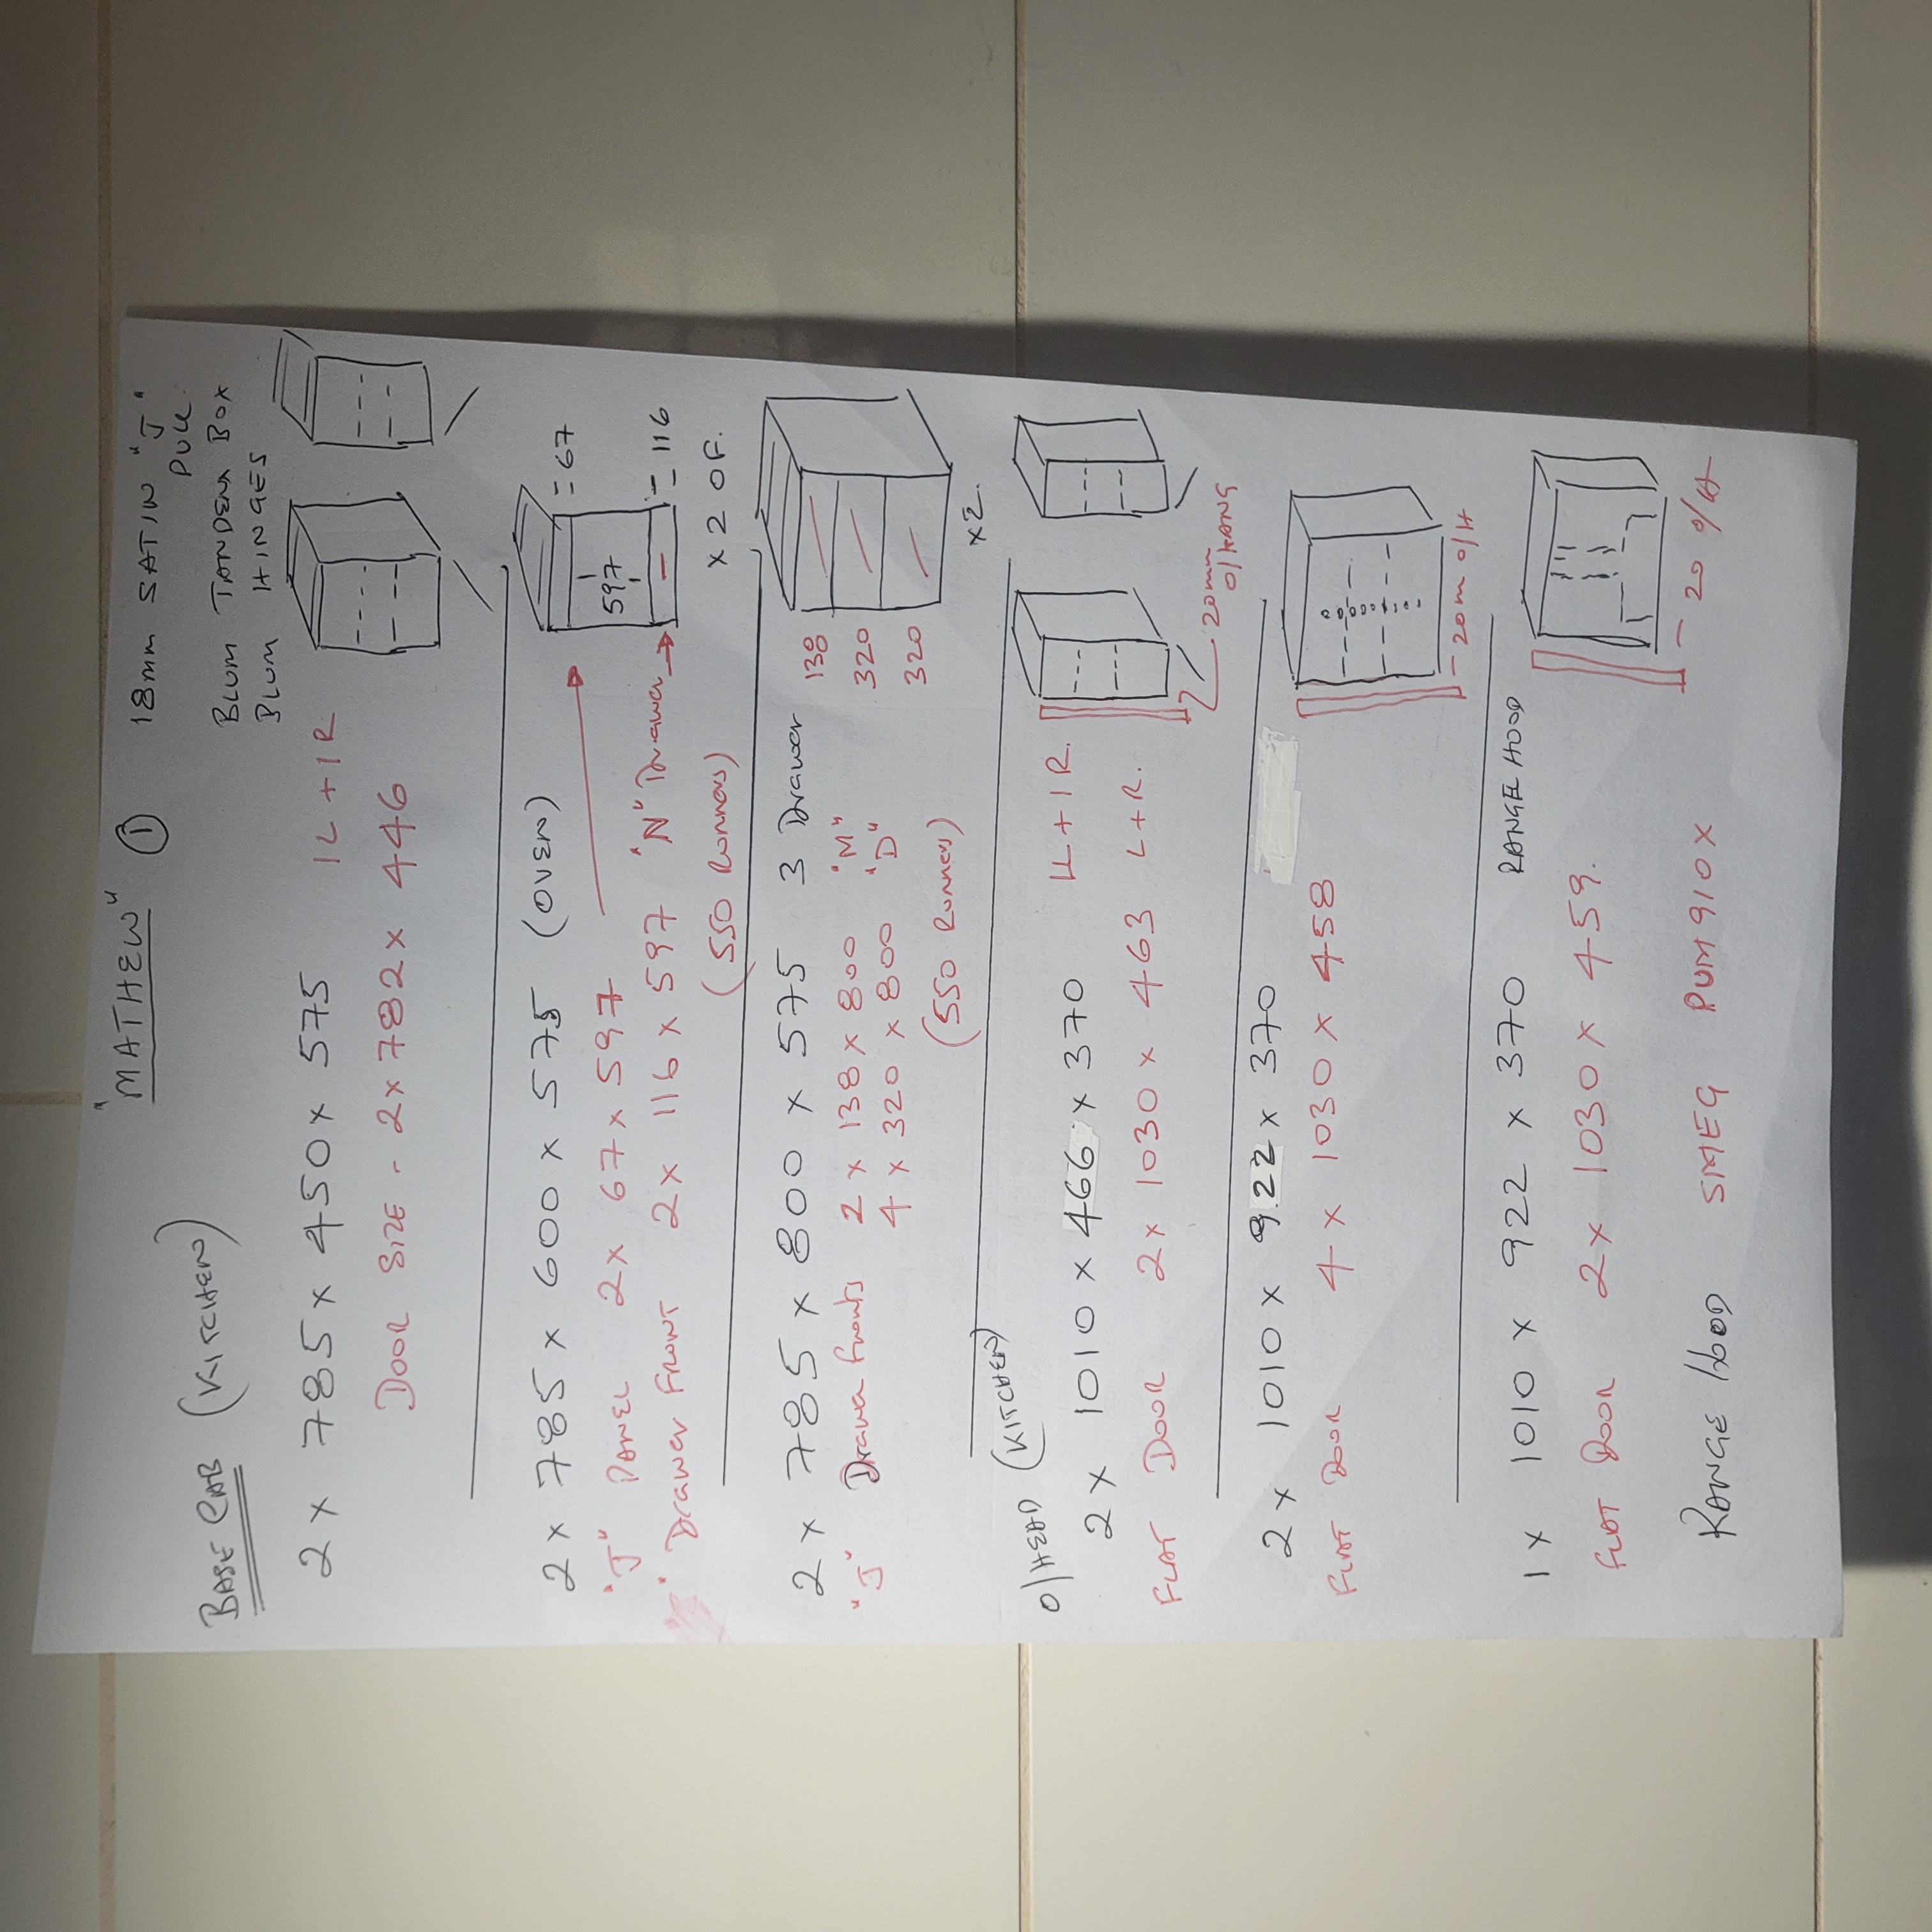 "MATHEW" ①
18mm SATIN "J" PULL.
BLUM TANDEM BOX
BLUM HINGES
BASE CAB (KITCHEN)
2 x 785 x 450 x 575 1L + 1R
DOOR SIZE - 2 x 782 x 446
2 x 785 x 600 x 575 (OVEN)
597
= 67
"J" PANEL 2 x 67 x 597
= 116
"J" Drawer FRONT 2 x 116 x 597 "N" Drawer
(550 Runners)
x 2 OF.
2 x 785 x 800 x 575 3 Drawer
138
320
320
"J" Drawer fronts 2 x 138 x 800 "M"
4 x 320 x 800 "D"
(550 Runners)
x2.
O/HEAD (KITCHEN)
2 x 1010 x 466 x 370 1L + 1R.
FLAT DOOR 2 x 1030 x 463 L + R.
20mm O/HANG
2 x 1010 x 922 x 370
FLAT DOOR 4 x 1030 x 458
20m O/H
1 x 1010 x 922 x 370 RANGE HOOD
FLAT DOOR 2 x 1030 x 459.
20 O/H
RANGE HOOD SMEG PUM910X